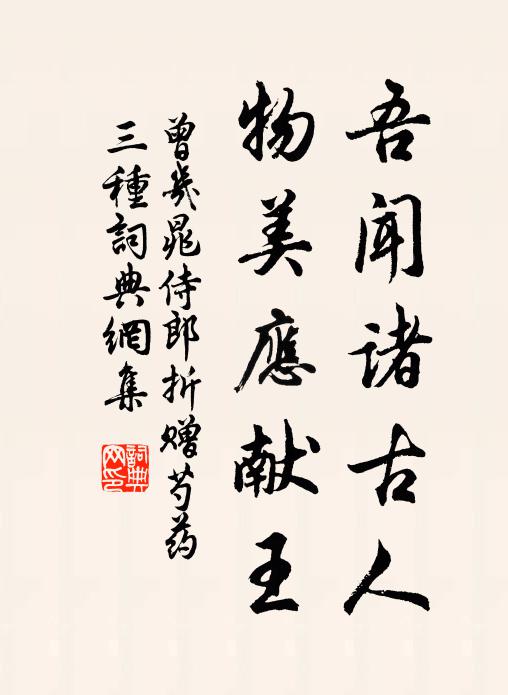 吾闻诸古人
物美應献王
曾幾晁侍郎折赠芍药
三種詞典網集
詞典网印